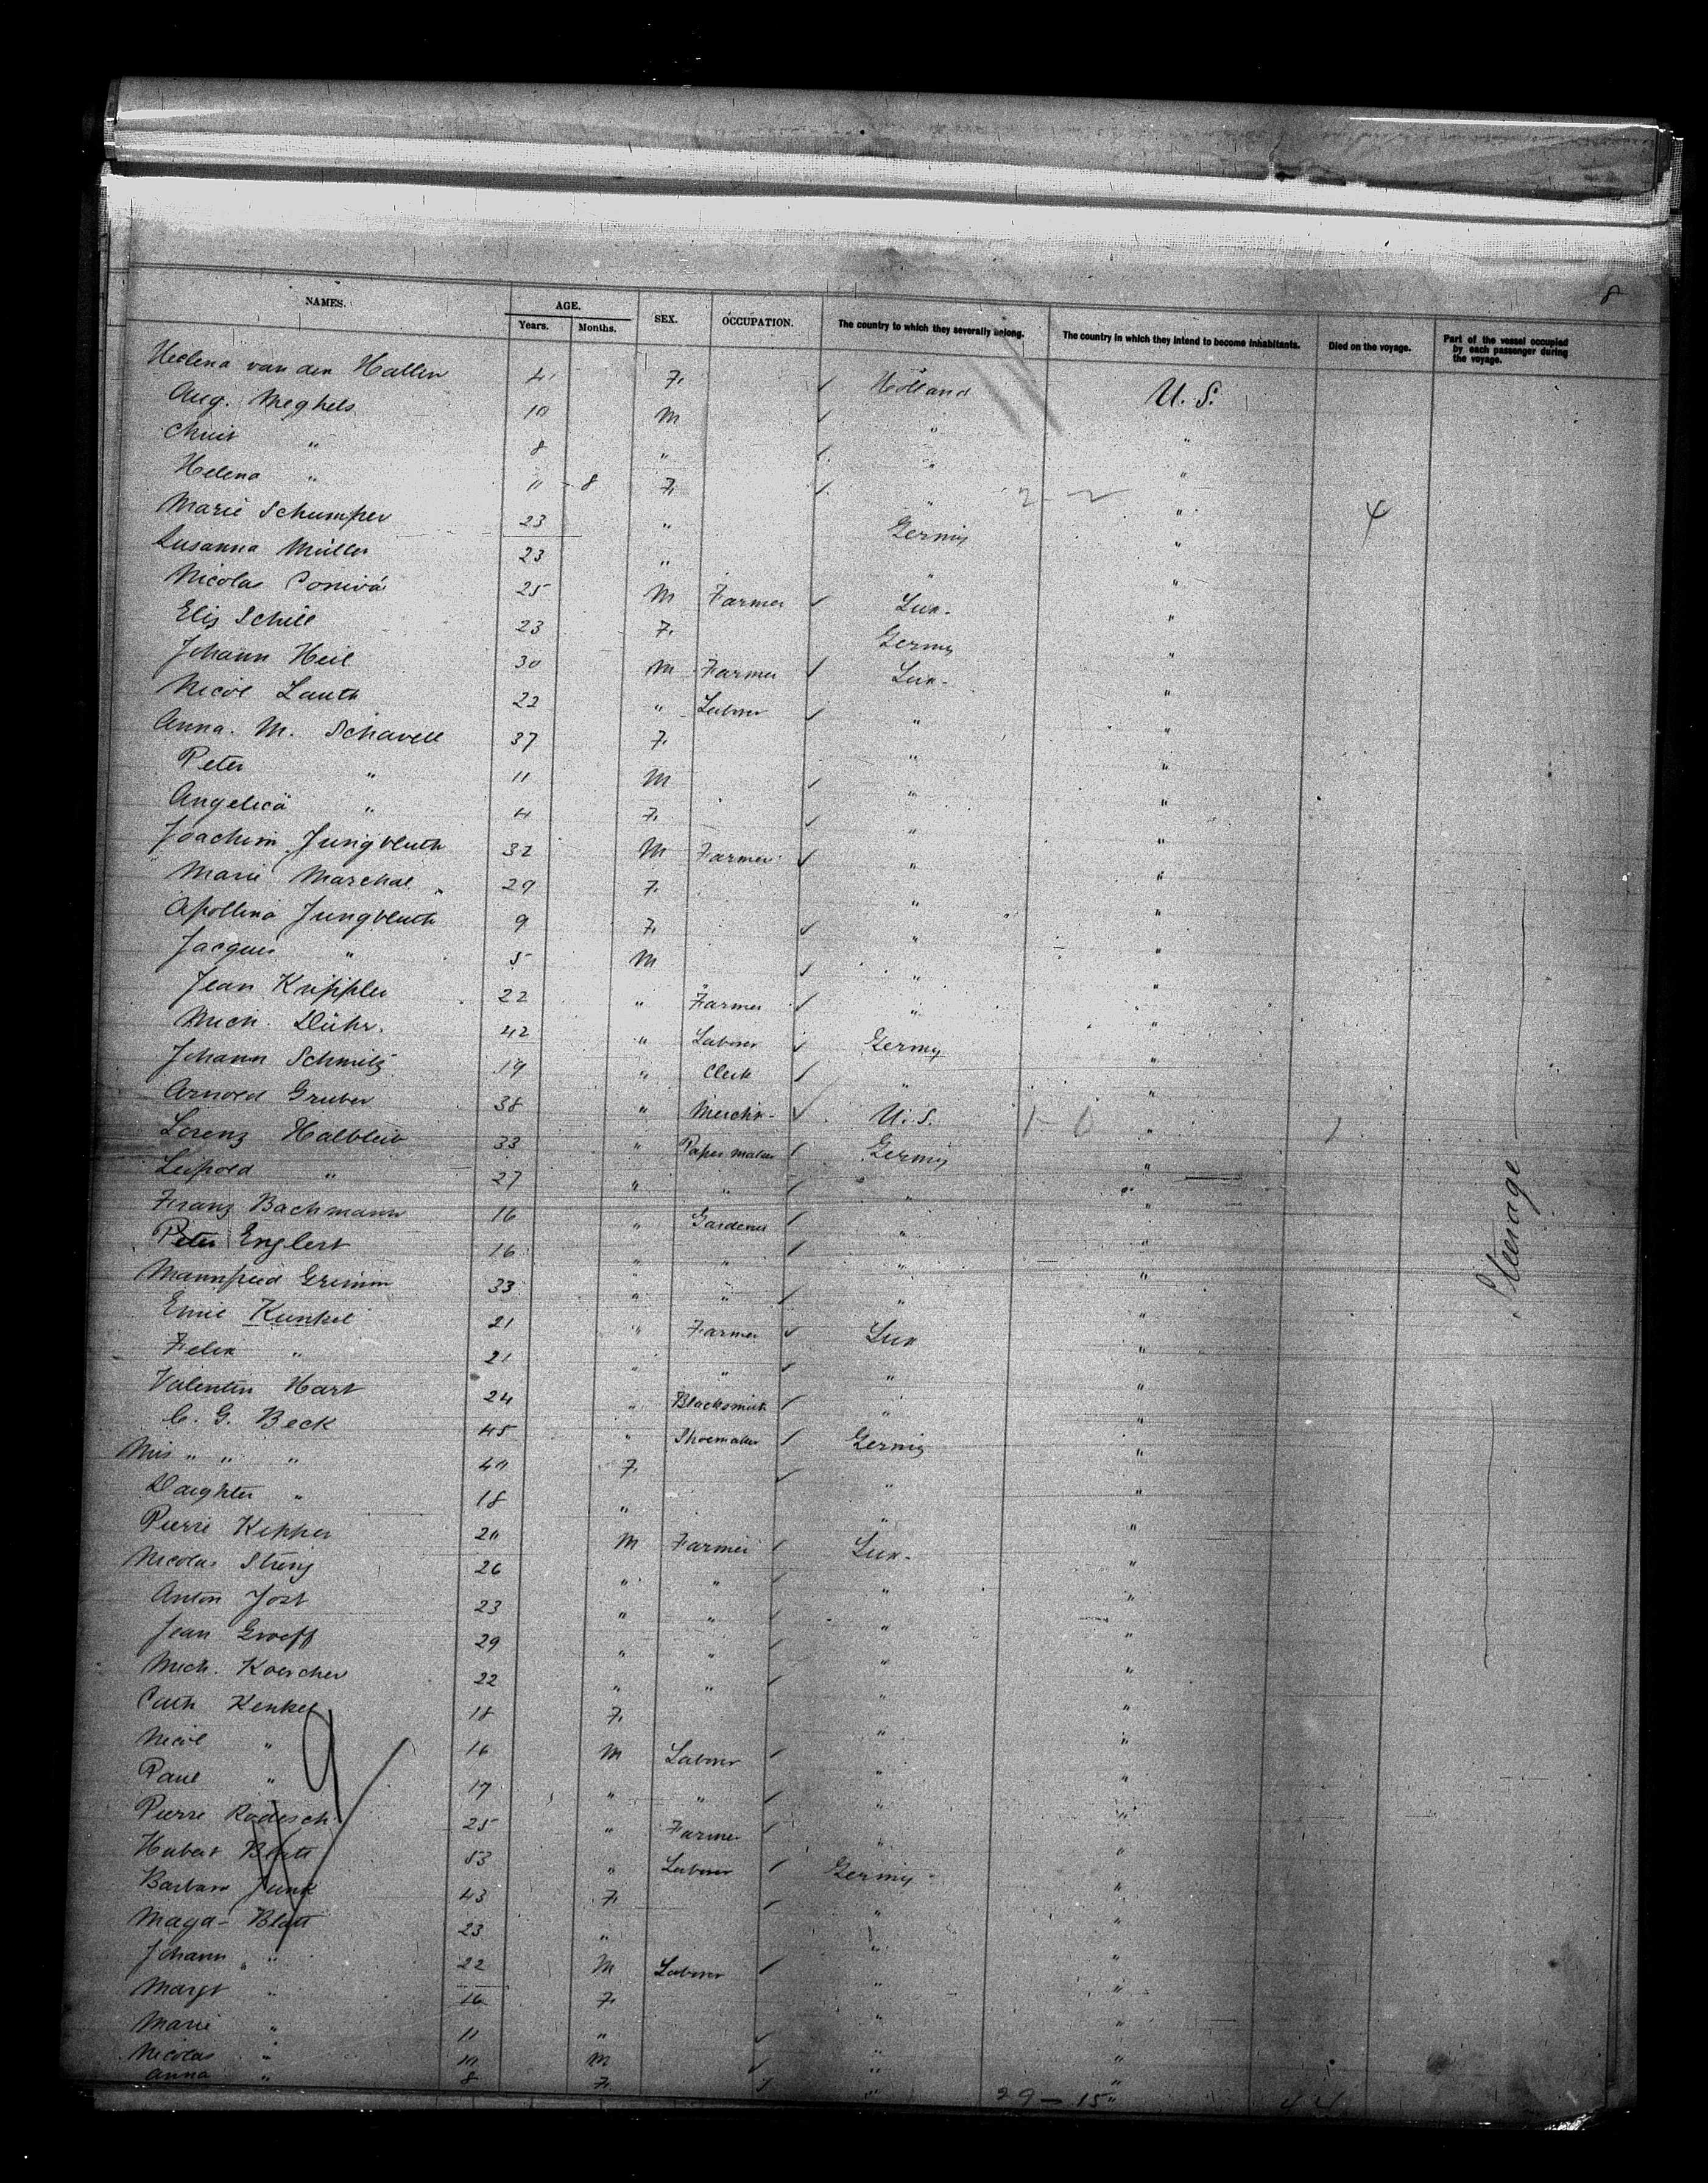 8
NAMES. AGE. SEX. OCCUPATION. The country to which they severally belong. The country in which they intend to become inhabitants. Died on the voyage. Part of the vessel occupied by each passenger during the voyage.
Years. Months.
Helena van den Hallen 41 F. ✓ Holland U. S.
Aug. Meghels 10 M ✓ " "
" 8 " ✓ " "
Helena " " 8 F. ✓ " 2 - 2 " 4
Marie Schumper 23 " Germy "
Susanna Müller 23 " " "
Nicolas 25 M Farmer ✓ Lux. "
Elis Schill 23 F. Germy "
Johann Heil 30 M Farmer ✓ Lux. "
Nicol Lauth 22 " Labour ✓ " "
Anna. M. Schavell 37 F. " "
Peter " 11 M ✓ " "
Angelica " 4 F. ✓ " "
Joachim Jungbluth 32 M Farmer ✓ " "
Marie Marchal " 29 F. " "
Apollina Jungbluth 9 F. ✓ " "
Jacques " 5 M ✓ " "
Jean Krippler 22 " Farmer ✓ " "
Mich. Dühr. 42 " Labour ✓ Germy "
Johann Schmitz 19 " Clerk ✓ " "
Arnold Gruber 38 " Mercht. ✓ U. S. 1 - 0 " 1
Lorenz Halbleib 33 " Paper maker ✓ Germy "
Leipold " 27 " " ✓ " "
Franz Bachmann 16 " Gardener ✓ " "
Peter Englert 16 " " ✓ " "
Mannfried Grimm 33 " " ✓ " "
Emil Kunkel 21 " Farmer ✓ Lux "
Felix " 21 " " ✓ " "
Valentin Hart 24 " Blacksmith ✓ " "
C. G. Beck 45 " Shoemaker ✓ Germy "
Mrs " " " 40 F. ✓ " "
Daughter " 18 " " "
Pierre Kipper 20 M Farmer ✓ Lux. "
Nicolas 26 " " ✓ " "
Anton Jost 23 " " ✓ " "
Jean Groeff 29 " " ✓ " "
Mich. Koercher 22 " " ✓ " "
Cath Kenkel 18 F. " "
Nicol " 16 M Labour ✓ " "
Paul " 17 " " ✓ " "
Pierre Rodesch 25 " Farmer ✓ " "
Hubert Blatt 53 " Labour ✓ Germy "
Barbara Junk 43 F. ✓ " "
Magd- Blatt 23 " " "
Johann " 22 M Labour ✓ " "
Margt " 16 F. " "
Marie " 11 " ✓ " "
Nicolas " 10 M ✓ " "
Anna " 8 F. ✓ " "
29 - 15 44
Steerage
9